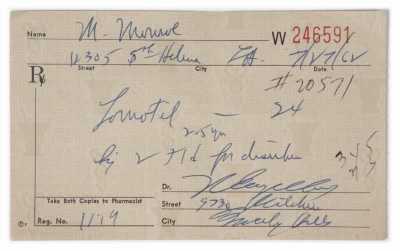 Name M. Monroe W 246591
12305 5th Helena LA. 7/27/62
Street City Date
Rx # 20571
Lomotil — 24
2.5 gm
Sig 2 for diarrhea
Dr.
Take Both Copies to Pharmacist
Street 9730 Wilshire
Reg. No. 1179 City Beverly Hills